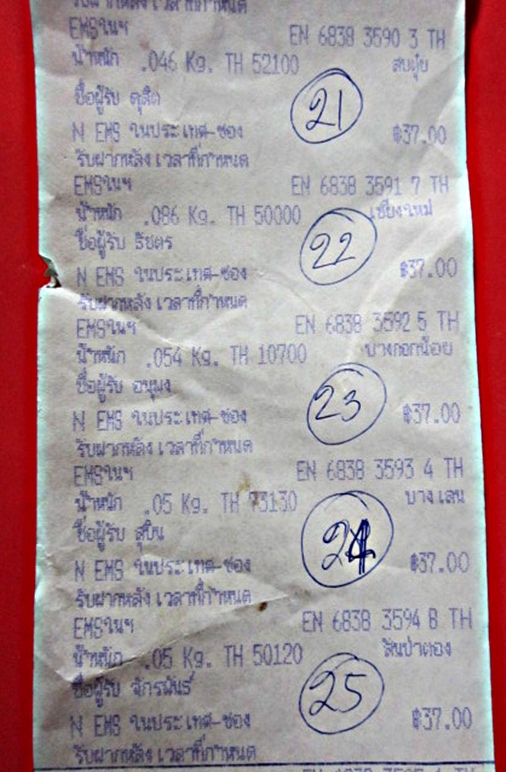 รับฝากหลัง เวลาที่กำหนด
EMSในฯ EN 6838 3590 3 TH
น้ำหนัก .046 Kg. TH 52100 สบปุ๋ย
ชื่อผู้รับ ดุสิต 21
N EMS ในประเทศ-ซอง ฿37.00
รับฝากหลัง เวลาที่กำหนด
EMSในฯ EN 6838 3591 7 TH
น้ำหนัก .086 Kg. TH 50000 เชียงใหม่
ชื่อผู้รับ ธิชตร 22
N EMS ในประเทศ-ซอง ฿37.00
รับฝากหลัง เวลาที่กำหนด
EMSในฯ EN 6838 3592 5 TH
น้ำหนัก .054 Kg. TH 10700 บางกอกน้อย
ชื่อผู้รับ 23
N EMS ในประเทศ-ซอง ฿37.00
รับฝากหลัง เวลาที่กำหนด
EMSในฯ EN 6838 3593 4 TH
น้ำหนัก .05 Kg. TH 73130 บางเลน
ชื่อผู้รับ สุบิน 24
N EMS ในประเทศ-ซอง ฿37.00
รับฝากหลัง เวลาที่กำหนด
EMSในฯ EN 6838 3594 8 TH
น้ำหนัก .05 Kg. TH 50120 สันป่าตอง
ชื่อผู้รับ จักรพันธ์ 25
N EMS ในประเทศ-ซอง ฿37.00
รับฝากหลัง เวลาที่กำหนด